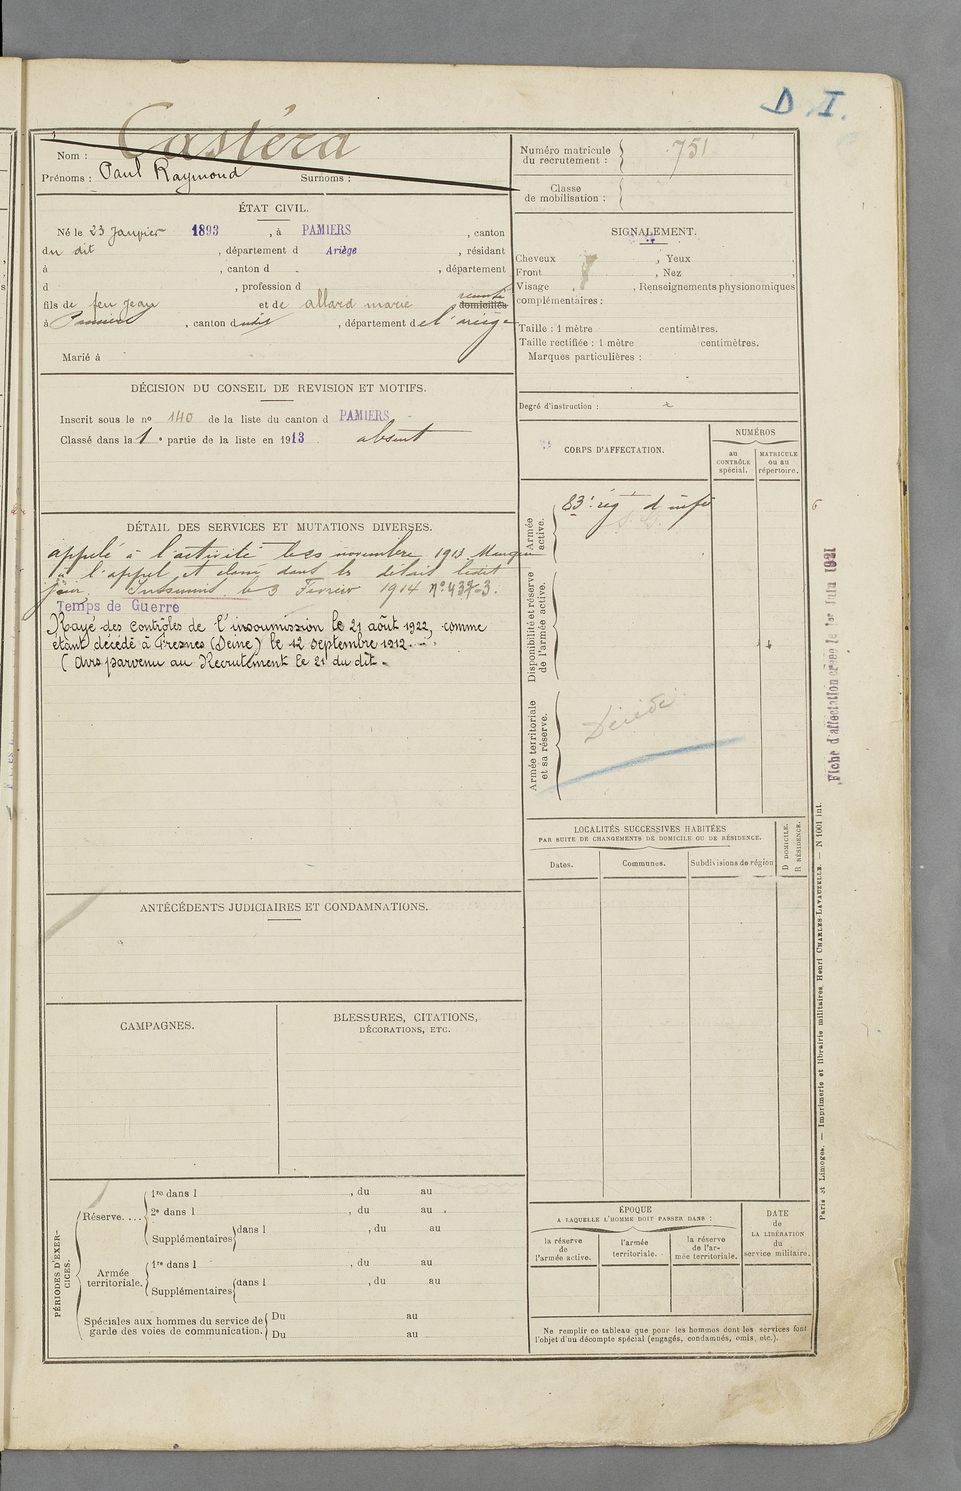 D I.
Castéra
Nom :
Prénoms : Paul Raymond Surnoms :
Numéro matricule du recrutement : 751
Classe de mobilisation :
ÉTAT CIVIL.
Né le 23 Janvier 1893, à PAMIERS, canton
du dit, département d Ariège, résidant
à , canton d , département
d , profession d
fils de feu Jean et de allard marie remariée domiciliés
à Pamiers, canton dudit, département de l'ariège
Marié à
SIGNALEMENT.
Cheveux , Yeux ,
Front , Nez ,
Visage , Renseignements physionomiques
complémentaires :
Taille : 1 mètre centimètres.
Taille rectifiée : 1 mètre centimètres.
Marques particulières :
Degré d'instruction :
DÉCISION DU CONSEIL DE REVISION ET MOTIFS.
Inscrit sous le nº 140 de la liste du canton d PAMIERS
Classé dans la 1e partie de la liste en 1913 absent
CORPS D'AFFECTATION.
NUMÉROS
au CONTRÔLE spécial.
MATRICULE ou au répertoire.
Armée active.
83e rég d'infie
Disponibilité et réserve de l'armée active.
Armée territoriale et sa réserve.
Décédé
DÉTAIL DES SERVICES ET MUTATIONS DIVERSES.
appelé à l'activité le novembre 1913 Manquant
à l'appel et classé dans les délais ledit
jour. Insoumis le 3 Février 1914 nº 437-3.
Temps de Guerre
Rayé des contrôles de l'insoumission le 21 août 1922, comme
étant décédé à Fresnes (Seine) le 12 septembre 1912.
(Avis parvenu au Recrutement le 21 du dit.
Fiche d'affectation créée le 1er Juin 1921
LOCALITÉS SUCCESSIVES HABITÉES
PAR SUITE DE CHANGEMENTS DE DOMICILE OU DE RÉSIDENCE.
Dates. Communes. Subdivisions de région
D DOMICILE.
R RÉSIDENCE.
ANTÉCÉDENTS JUDICIAIRES ET CONDAMNATIONS.
CAMPAGNES.
BLESSURES, CITATIONS,
DÉCORATIONS, ETC.
PÉRIODES D'EXERCICES.
Réserve....
1re dans l , du au
2e dans l , du au
Supplémentaires dans l , du au
Armée territoriale.
1re dans l , du au
Supplémentaires dans l , du au
Spéciales aux hommes du service de garde des voies de communication.
Du au
Du au
ÉPOQUE
A LAQUELLE L'HOMME DOIT PASSER DANS :
la réserve de l'armée active.
l'armée territoriale.
la réserve de l'armée territoriale.
DATE de LA LIBÉRATION du service militaire.
Ne remplir ce tableau que pour les hommes dont les services font
l'objet d'un décompte spécial (engagés, condamnés, omis, etc.).
Paris et Limoges. — Imprimerie et librairie militaires Henri CHARLES-LAVAUZELLE. — N 1001 int.